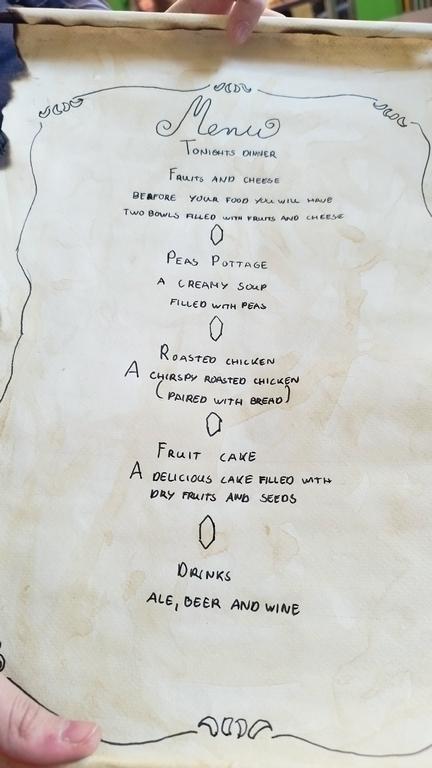 Menu
TONIGHTS DINNER
FRUITS AND CHEESE
BERFORE YOUR FOOD YOU WILL HAVE
TWO BOWLS FILLED WITH FRUITS AND CHEESE
PEAS POTTAGE
A CREAMY SOUP
FILLED WITH PEAS
ROASTED CHICKEN
A CHIRSPY ROASTED CHICKEN
(PAIRED WITH BREAD)
FRUIT CAKE
A DELICIOUS CAKE FILLED WITH
DRY FRUITS AND SEEDS
DRINKS
ALE, BEER AND WINE